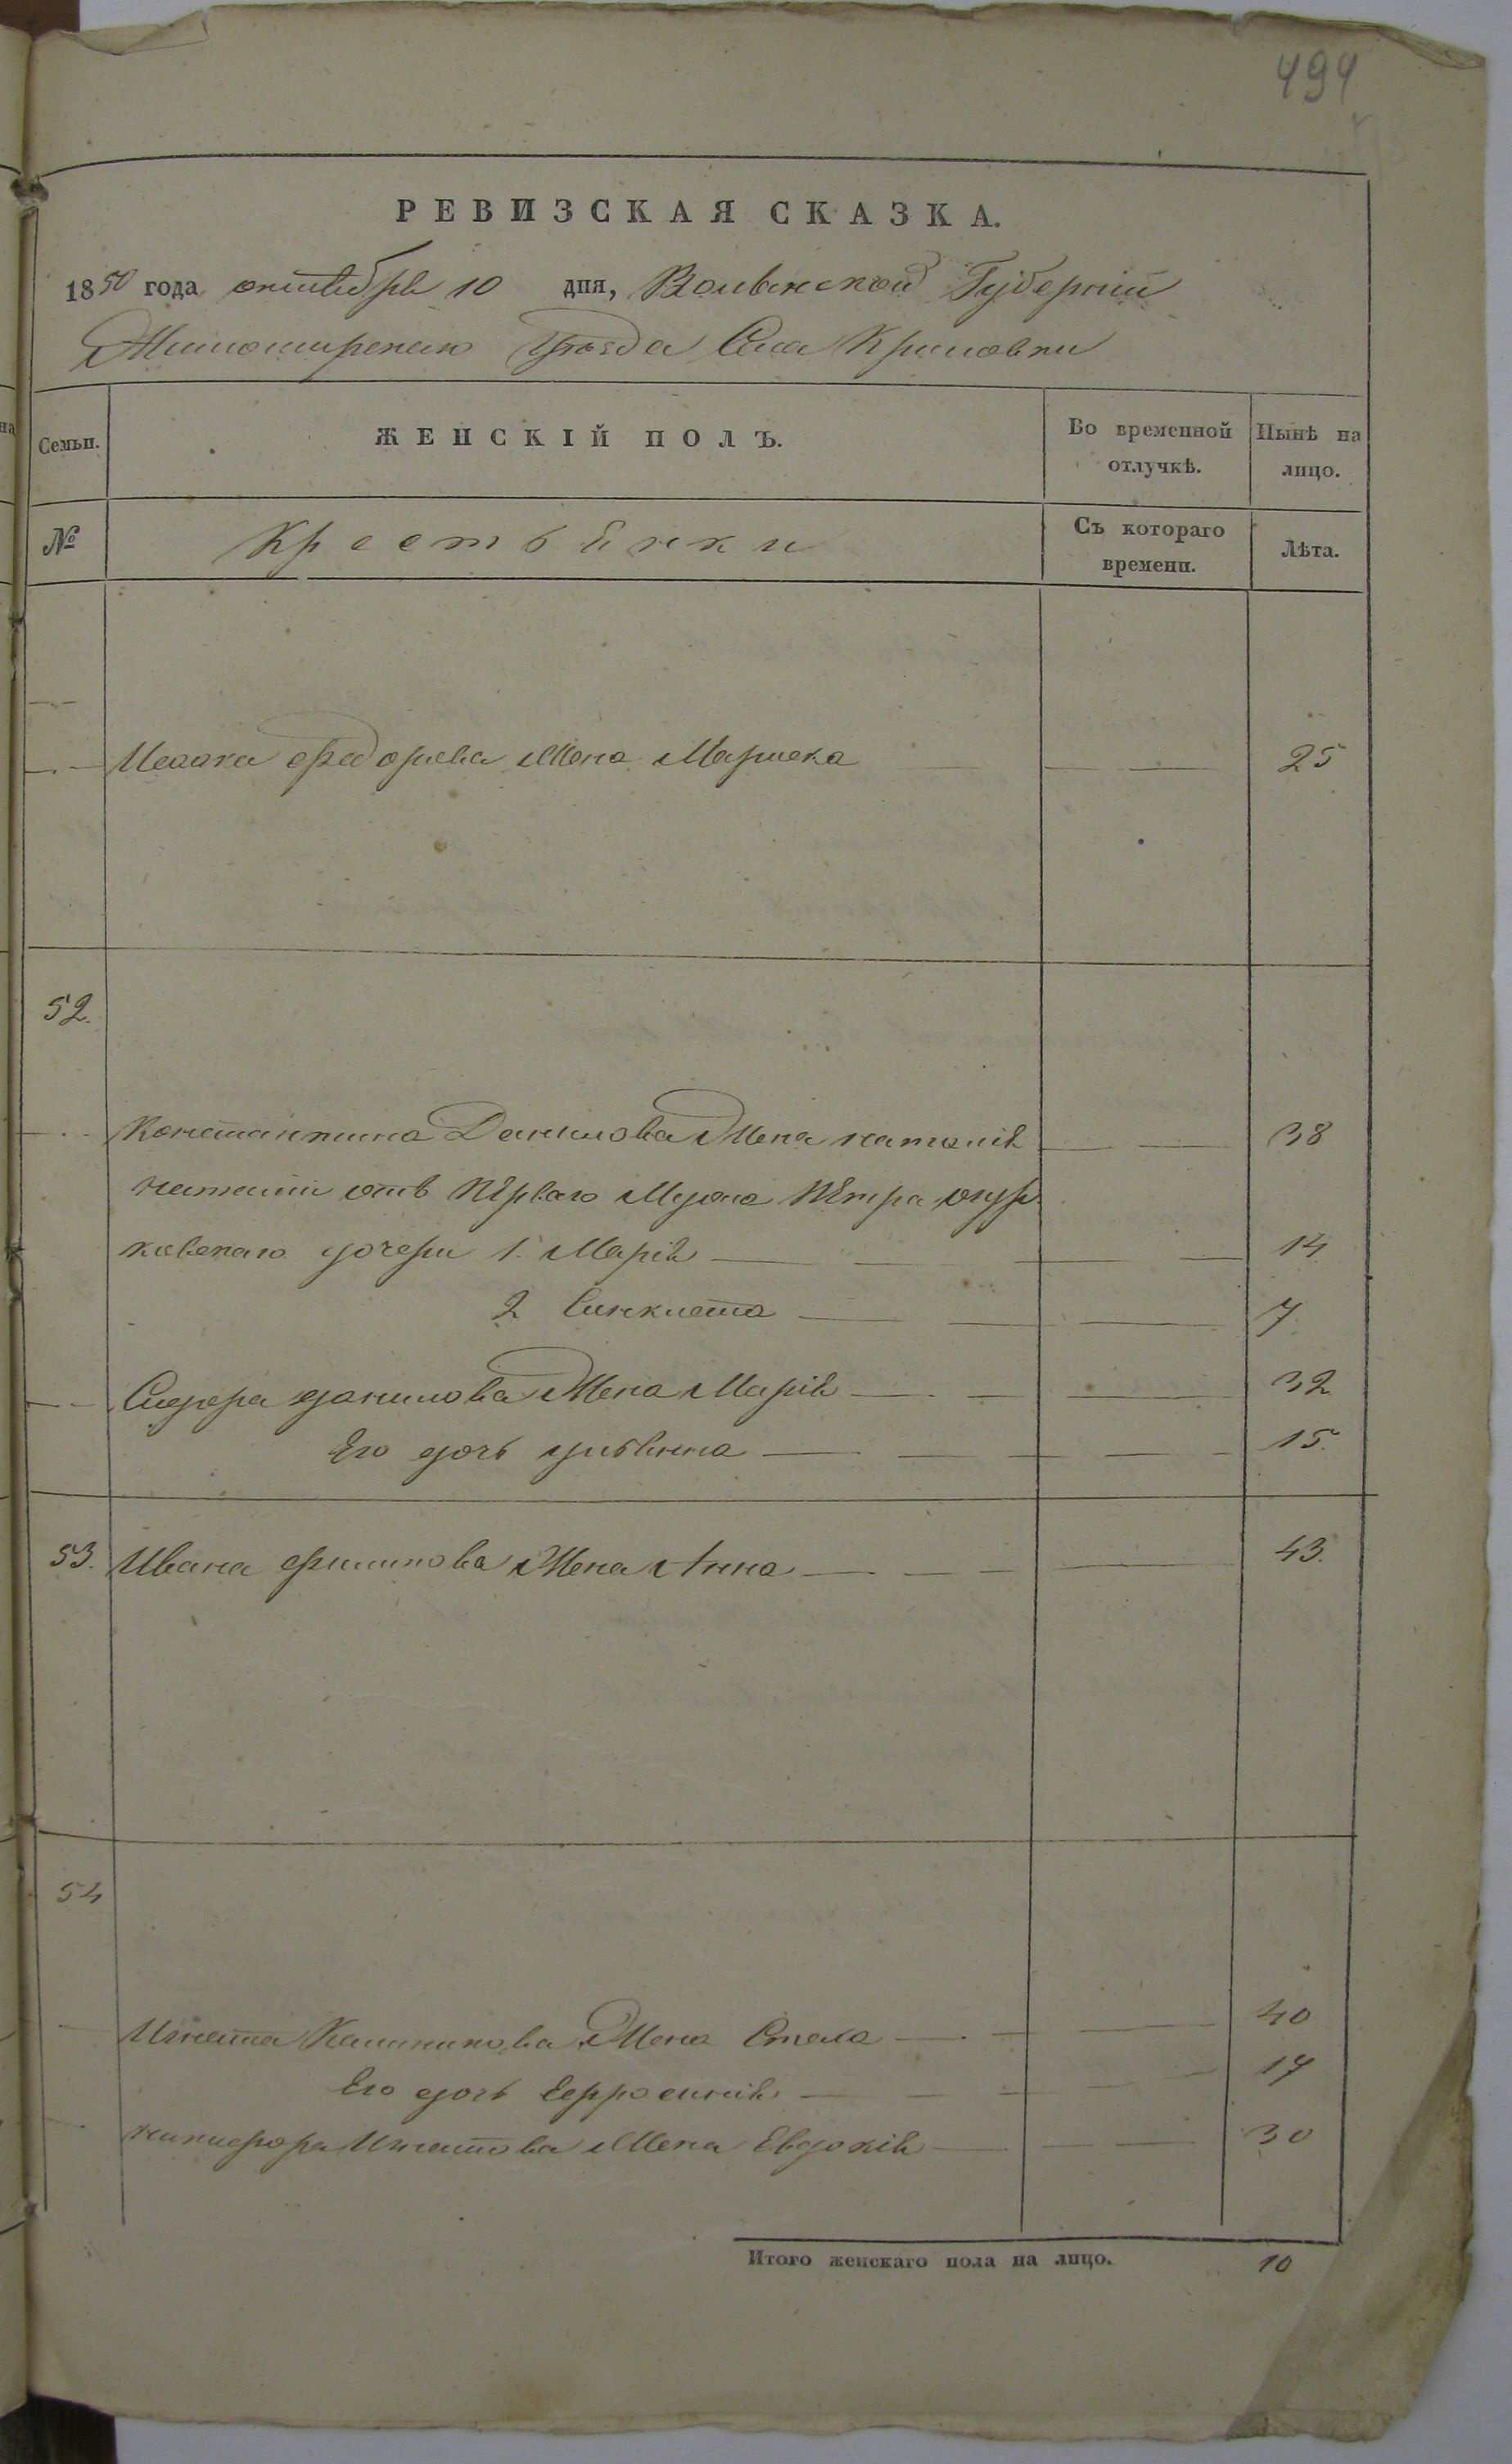 494
РЕВИЗСКАЯ СКАЗКА.
1850 года октября 10 дня, Волынской Губерніи
Житомирскаго Уѣзда Села Крыловки
Семьи. ЖЕНСКІЙ ПОЛЪ. Во временной отлучкѣ. Нынѣ на лицо.
№ Крестьянки Съ котораго времени. Лѣта.
Исаака Федорова Жена Мариска 25
52.
Константина Данилова Жена наталія 38
наталіи отъ Перваго Мужа Петра
дочери 1. Марія 14
2 Синклета 7
Сидора данилова Жена Марія 32
Его дочь 15.
53. Ивана филипова Жена Анна 43.
54
Игната Жена Стеха 40
Его дочь Ефросинія 17
никифора Игнатова Жена Евдокія 30
Итого женскаго пола на лицо. 10